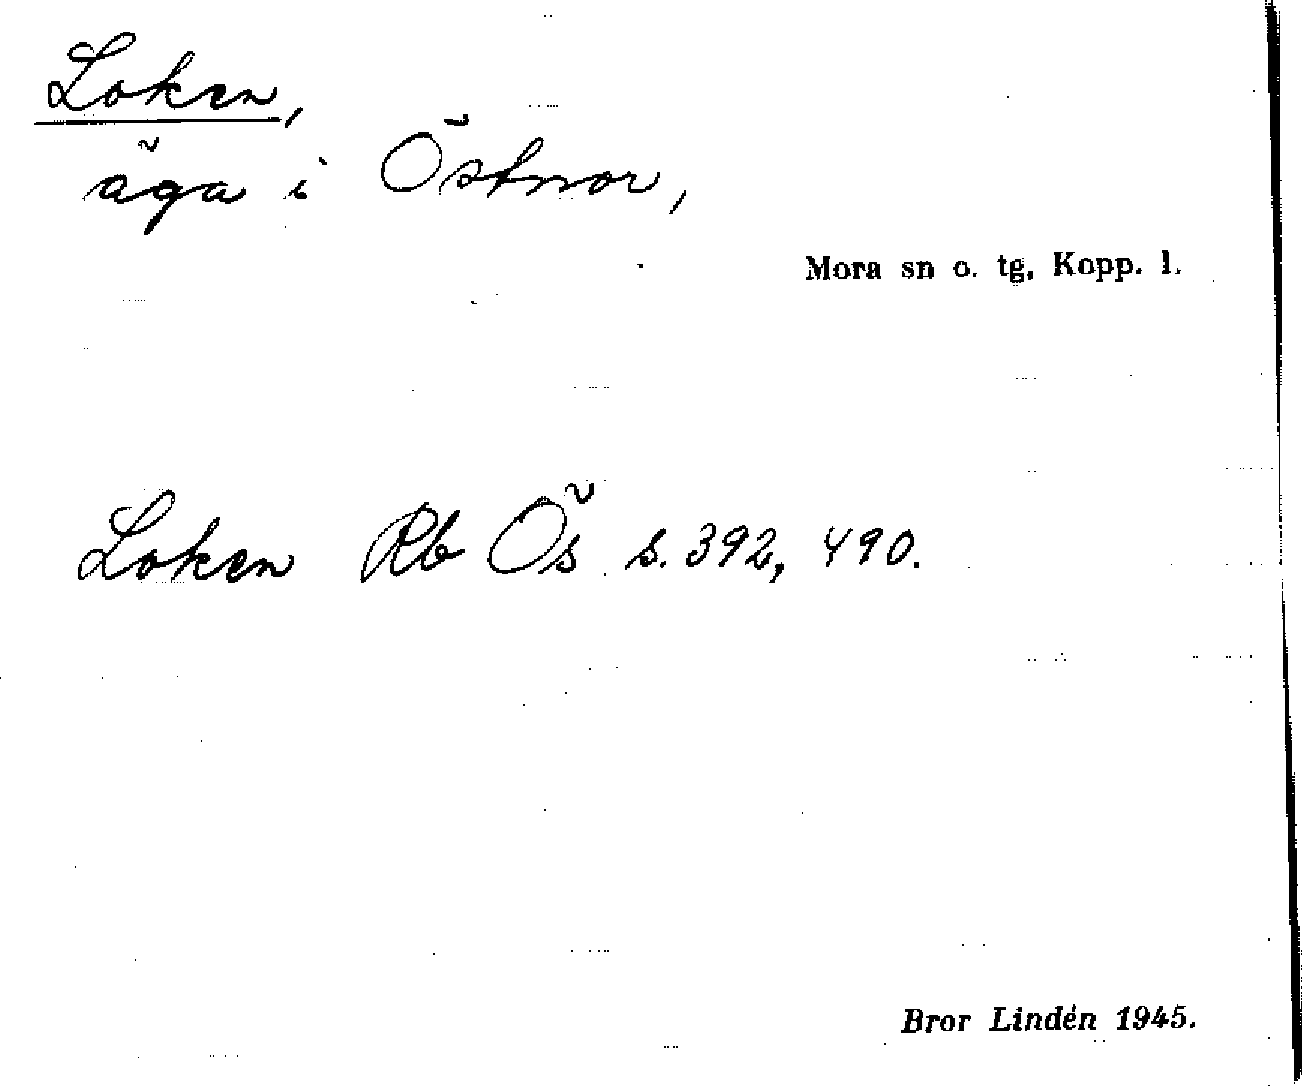 Loken,
äga i Östnor,
Mora sn o. tg, Kopp. l.
Loken Rb Ös s. 392, 490.
Bror Lindén 1945.